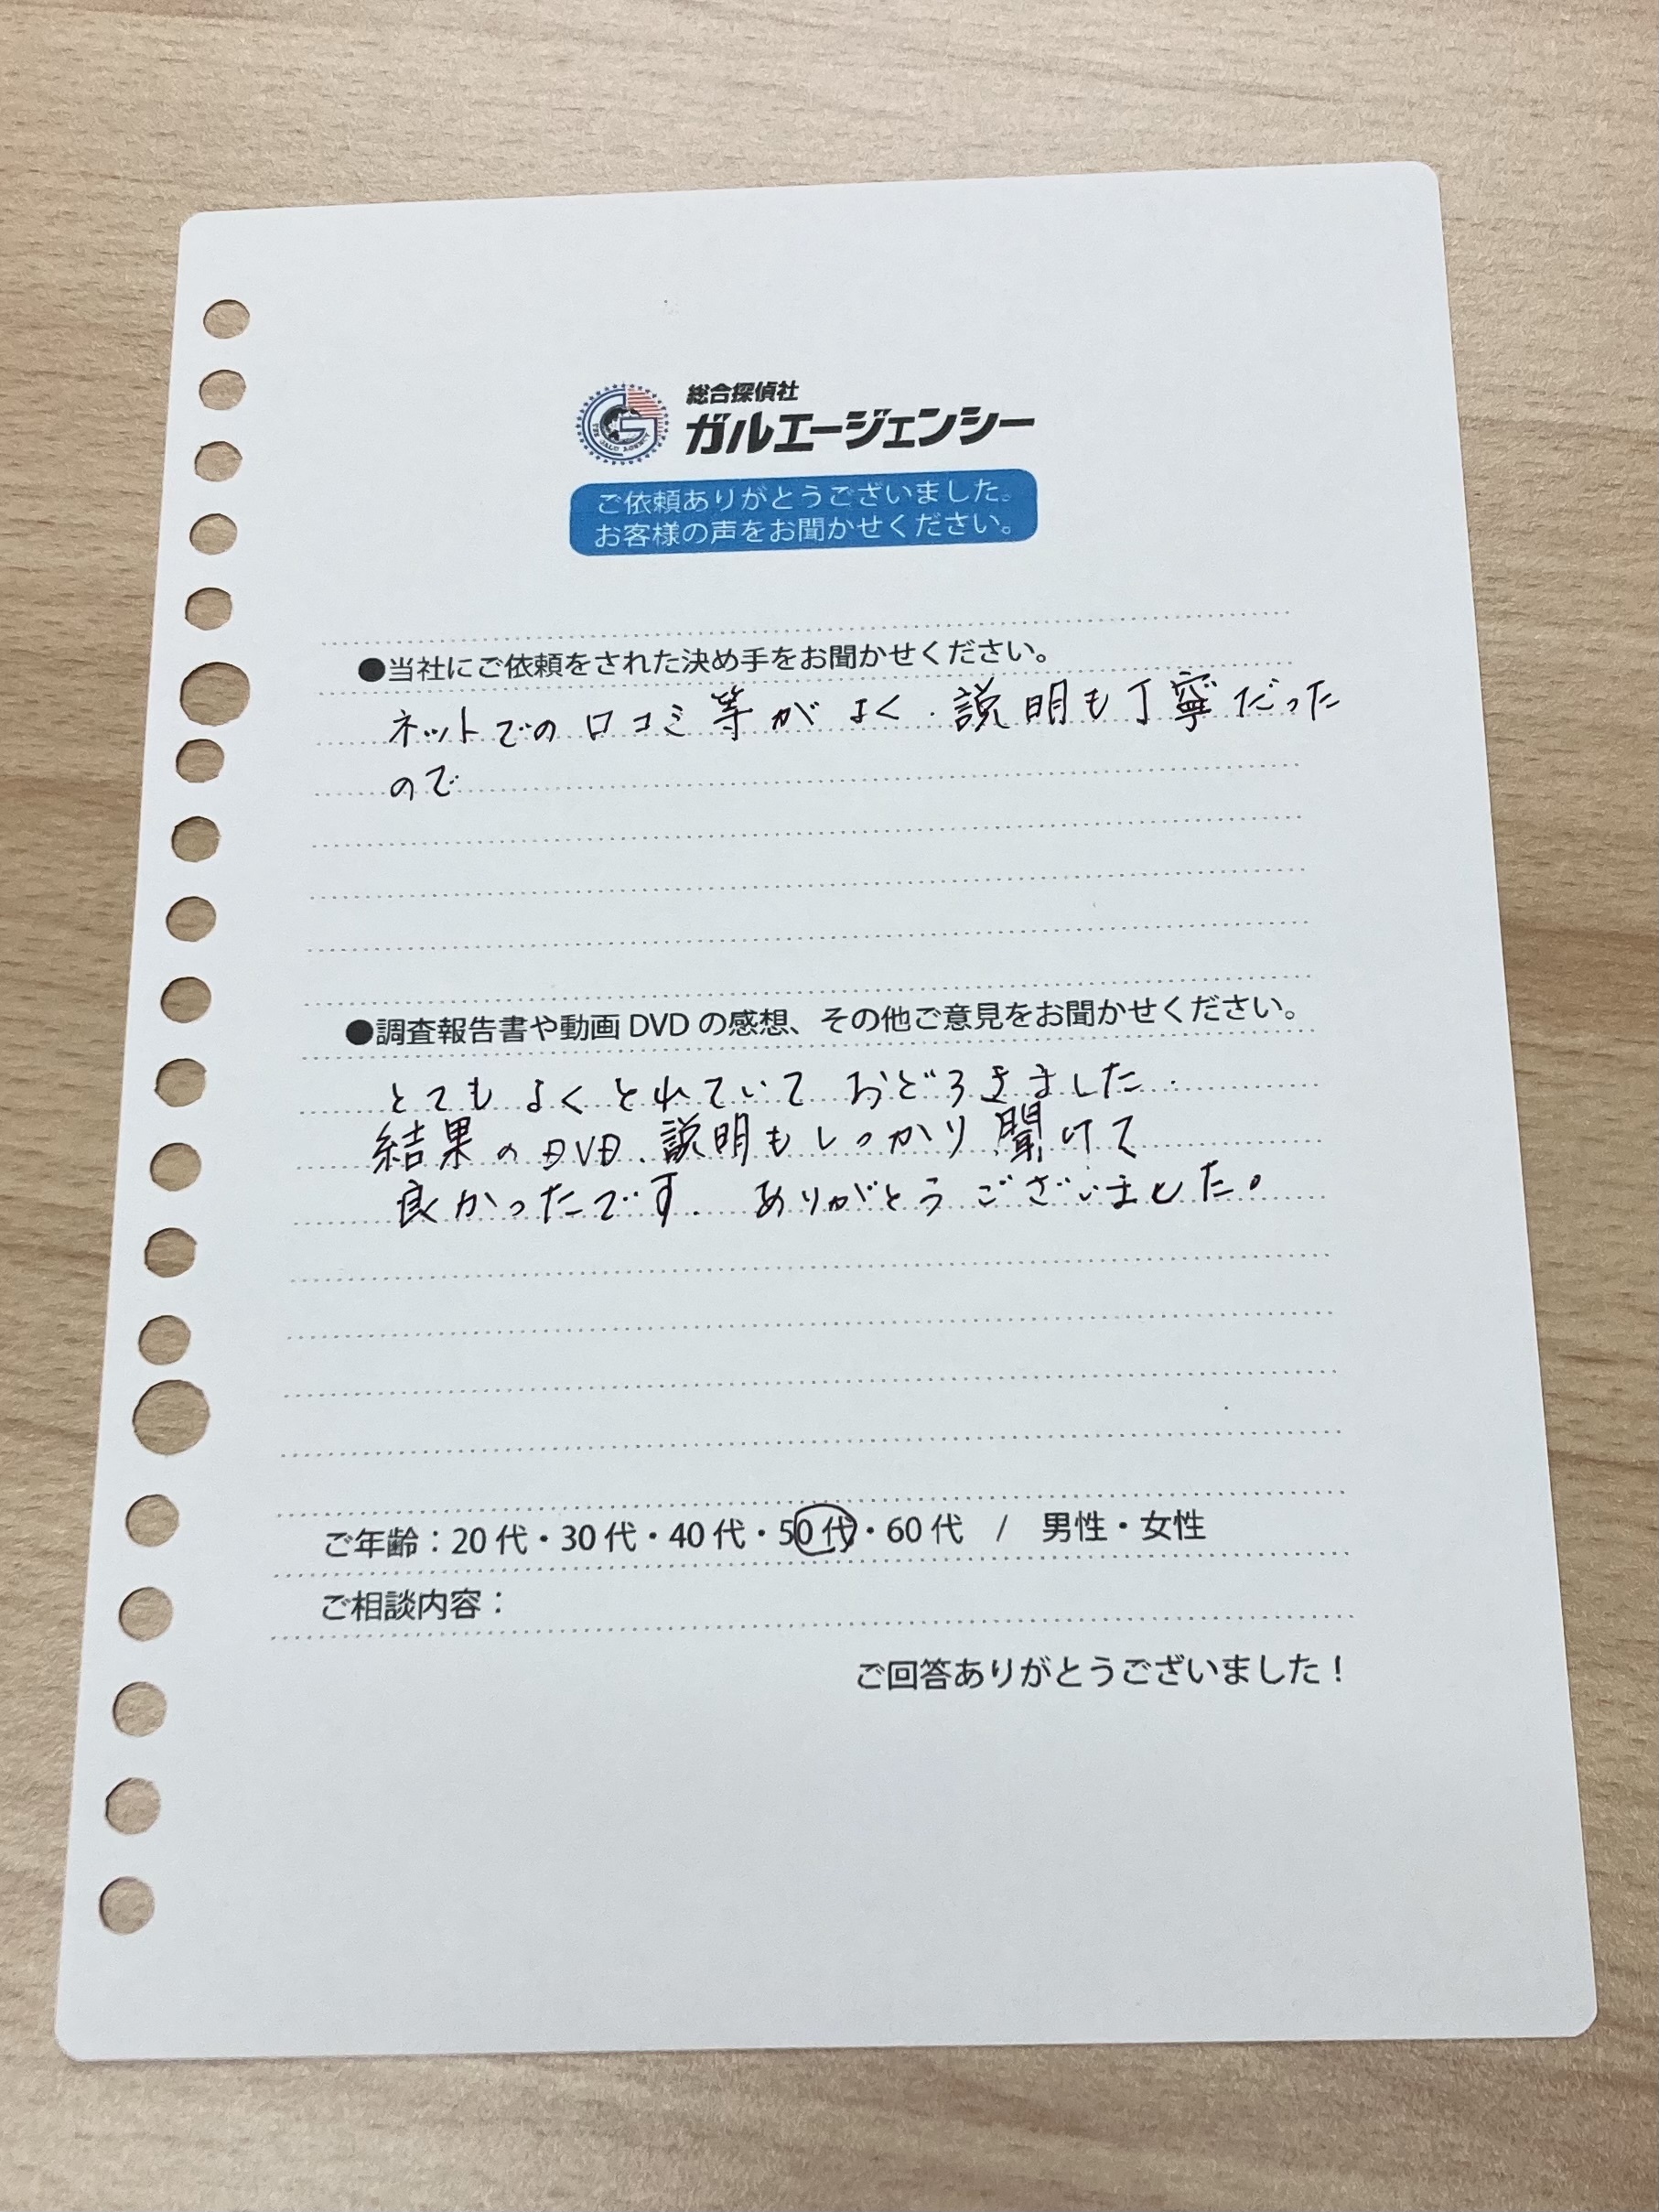 総合探偵社
ガルエージェンシー
THE GALU AGENCY
ご依頼ありがとうございました。
お客様の声をお聞かせください。
●当社にご依頼をされた決め手をお聞かせください。
ネットでの口コミ等がよく、説明も丁寧だった
ので
●調査報告書や動画DVDの感想、その他ご意見をお聞かせください。
とてもよくとれていておどろきました.
結果のDVD、説明もしっかり聞けて
良かったです. ありがとうございました。
ご年齢：20代・30代・40代・50代・60代 / 男性・女性
ご相談内容：
ご回答ありがとうございました！